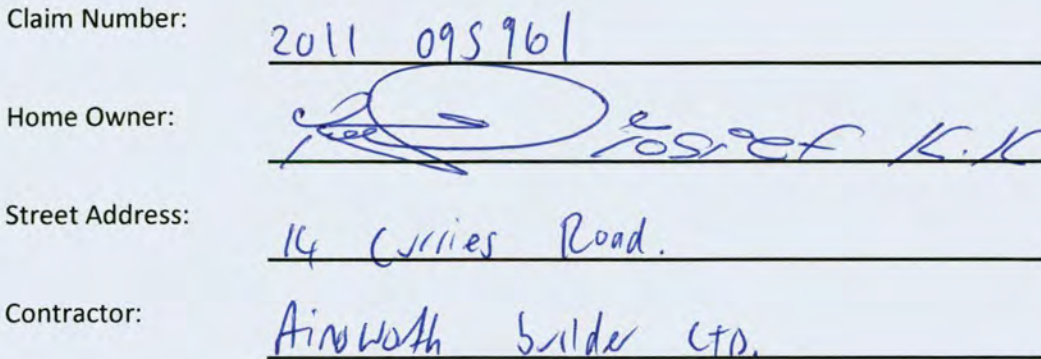 Claim Number: 2011 095961
Home Owner: K.K
Street Address: 14 Curries Road.
Contractor: Ainsworth builder LTD.